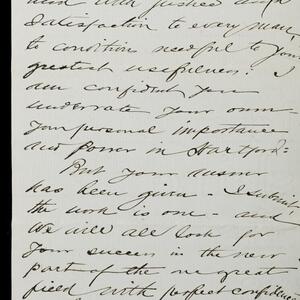 and with justice and
satisfaction to every man,
to condition needful to your
greatest usefulness:
am confident you
underrate your own
your personal importance
and power in Hartford.
But your answer
has been given - I submit
the work is one - and
We will all look for
your success in the new
part of the one great
field with perfect confidence